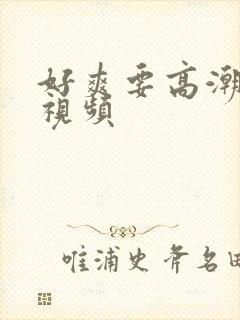 好爽要高潮
視頻
唯浦史斧名田